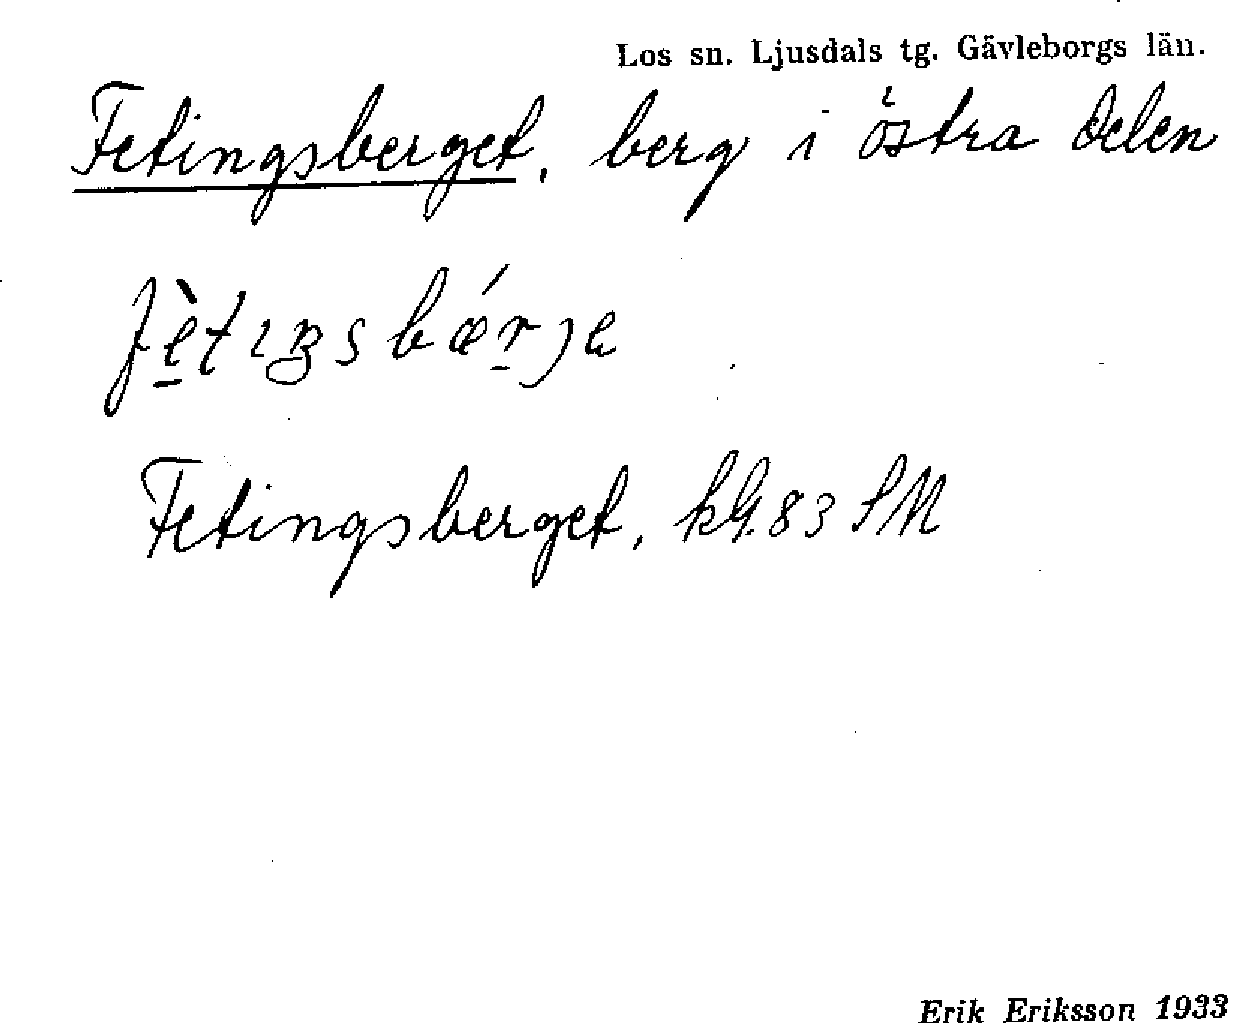 Los sn. Ljusdals tg. Gävleborgs län.
Fetingsberget, berg i östra delen
Fetingsberget, kbl. 83 SM
Erik Eriksson 1933